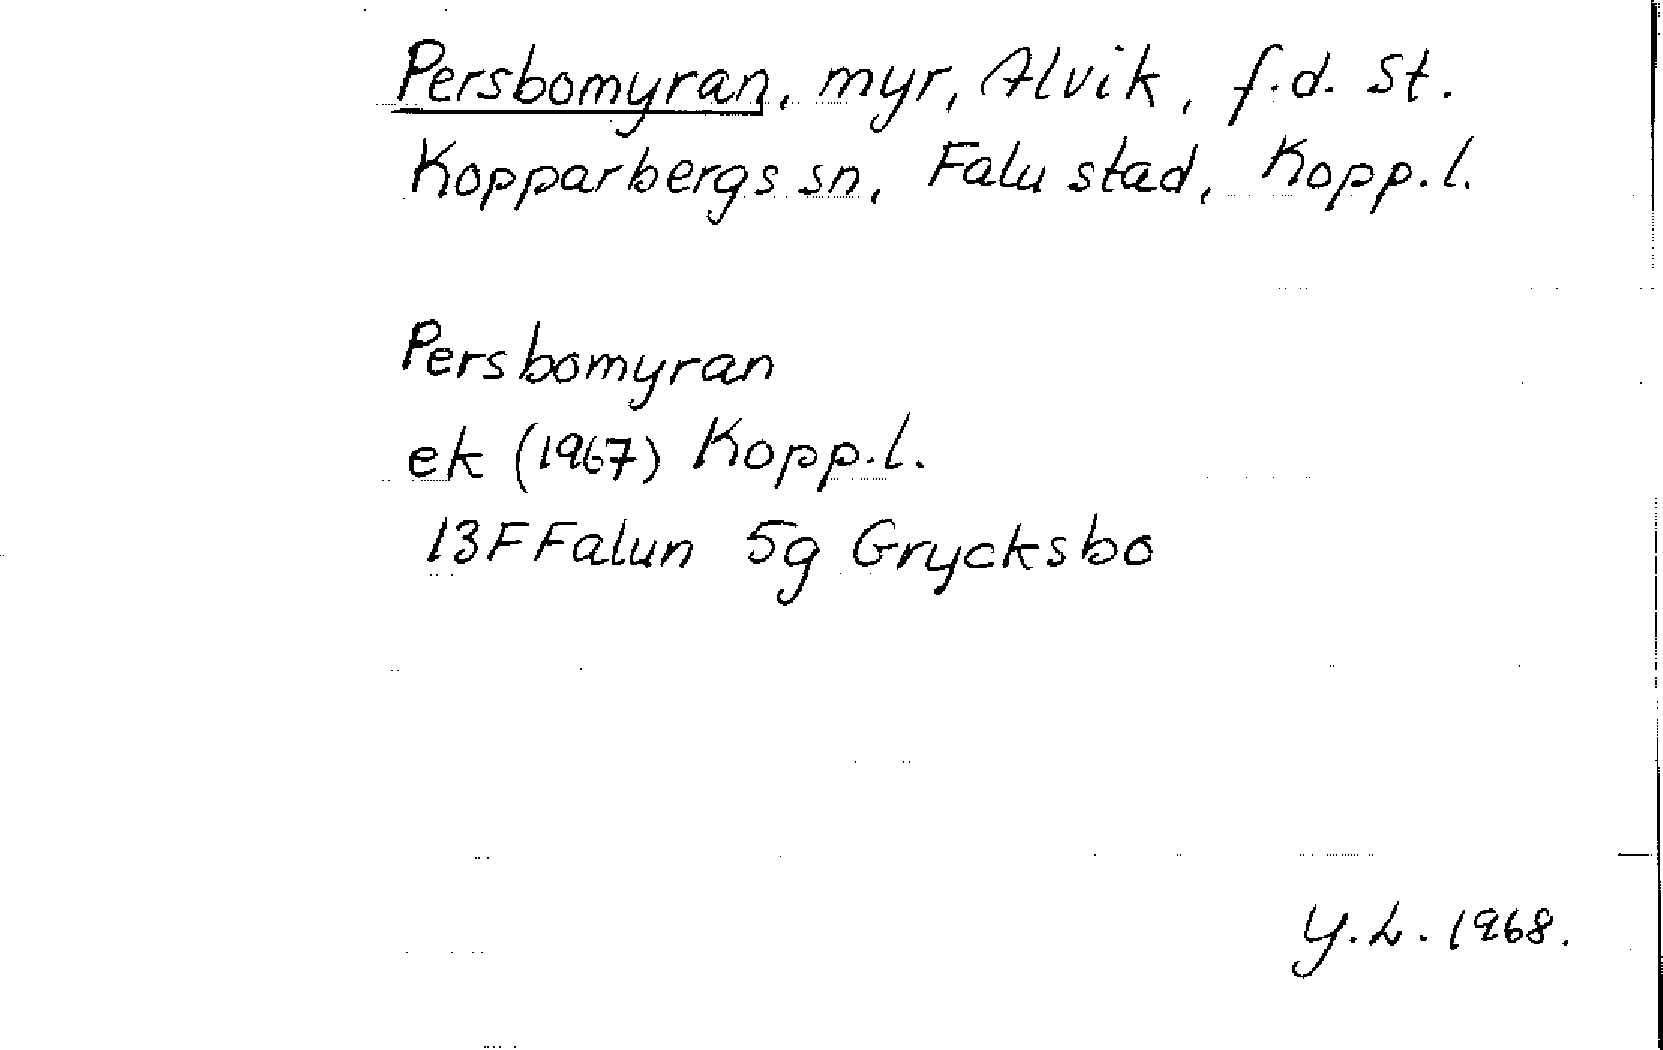 Persbomyran, myr, Alvik, f.d. St.
Kopparbergs sn, Falu stad, Kopp.l.
Persbomyran
ek (1967) Kopp.l.
13F Falun 5g Grycksbo
Y.L. 1968.